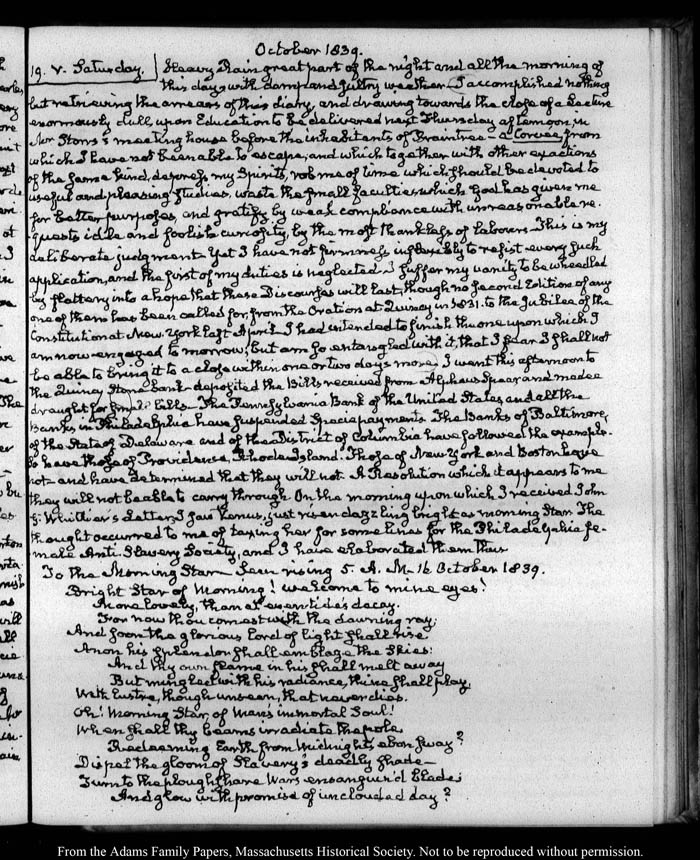 October 1839.
19. V. Saturday. Heavy Rain great part of the night and all the morning of
this day, with damp and sultry weather. I accomplished nothing
but retrieving the arrears of this diary, and drawing towards the close of a Lecture
enormously dull, upon Education to be delivered next Thursday afternoon, in
Mr Storrs's meeting house before the inhabitants of Braintree – a Corvee, from
which I have not been able to escape, and which together with other exactions
of the same kind, depress my Spirits, rob me of time which should be devoted to
useful and pleasing studies, waste the small faculties which God has given me
for better purposes, and gratify by weak compliance with unreasonable re-
quests idle and foolish curiosity, by the most thankless of labours. This is my
deliberate judgment. Yet I have not firmness inflexibly to resist every such
application, and the first of my duties is neglected. I suffer my vanity to be wheedled
by flattery into a hope that these Discourses will last, though no second Edition of any
one of them has been called for, from the Oration at Quincy in 1831. to the Jubilee of the
Constitution at New-York last April. I had intended to finish the one upon which I
am now engaged to morrow; but am so entangled with it, that I fear I shall not
be able to bring it to a close within one or two days more. I went this afternoon to
the Quincy Stone Bank deposited the Bills received from Alpheus Spear and made a
draught for small bills. The Pennsylvania Bank of the United States and all the
Banks in Philadelphia have suspended Specie payments. The Banks of Baltimore,
of the State of Delaware and of the District of Columbia have followed the example.
So have those of Providence, Rhode Island. Those of New York and Boston have
not – and have determined that they will not. A Resolution which it appears to me
they will not be able to carry through. On the morning upon which I received John
G. Whittier's Letter, I saw Venus, just risen dazzling bright as morning Star. The
thought occurred to me of taxing her for some lines for the Philadelphia fe-
male Anti-Slavery Society, and I have elaborated them thus
To the Morning Star – Seen rising 5. A.M. 16 October 1839.
Bright Star of Morning! welcome to mine eyes!
More lovely, than at eventide's decay.
For now thou comest with the dawning ray;
And soon the glorious lord of light shall rise.
Anon his splendor shall emblaze the Skies:
And thy own flame in his shall melt away
But mingled with his radiance, thine shall play,
With lustre, though unseen, that never dies.
Oh! Morning Star, of Man's immortal Soul!
When shall thy beams irradiate the pole,
Redeeming Earth from Midnight's ebon sway?
Dispel the gloom of Slavery's deadly shade –
Turn to the ploughshare War's ensanguin'd blade;
And glow with promise of unclouded day?
From the Adams Family Papers, Massachusetts Historical Society. Not to be reproduced without permission.